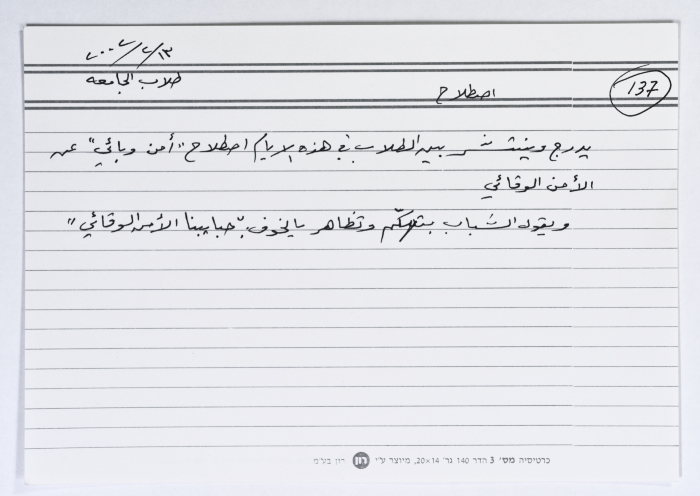 ٢٠٠٢/٢/١٣
طلاب الجامعه
137
اصطلاح
يدرج وينتشر بين الطلاب في هذه الايام اصطلاح "أمن وبائي" عن
الأمن الوقائي
ويقول الشباب بتهكّم وتظاهر بالخوف: "حبايبنا الأمن الوقائي"
כרטיסיה מס׳ 3 הדר 140 גר׳ 14×20, מיוצר ע״י רון רון בע״מ